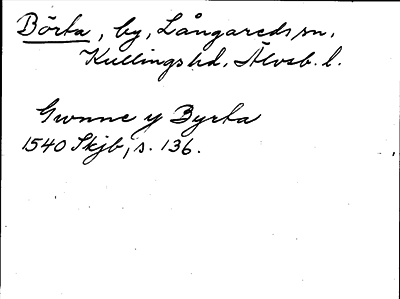 Börta, by, Långareds sn.
Kullings hd. Älvsb. l.
Gwnne y Byrta
1540 Skjb, s. 136.